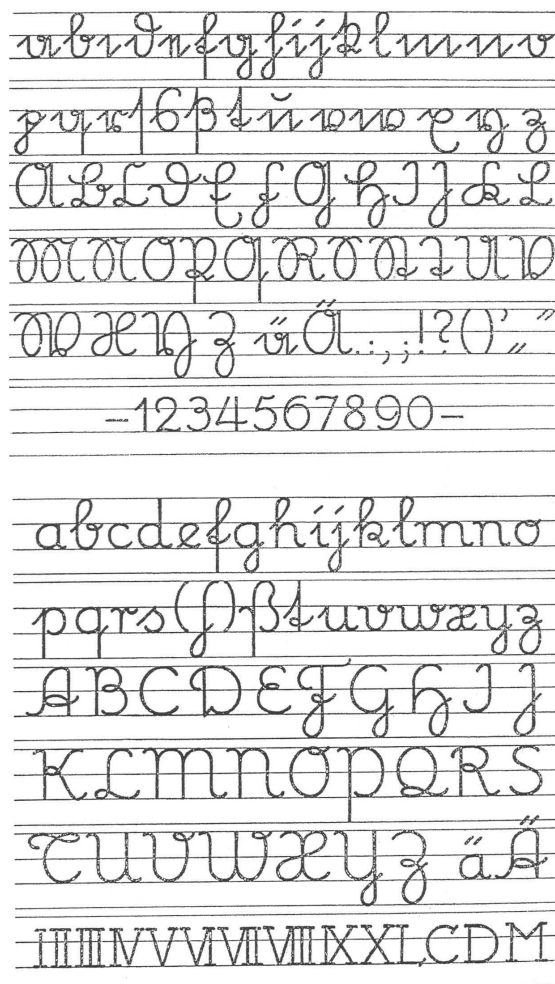 a b c d e f g h i j k l m n o
p q r ſ s ß t u v w x y z
A B C D E F G H I J K L
M N O P Q R S St T U V
W X Y Z ä Ä . : , ; ! ? ( ) ' „ "
-1234567890-
a b c d e f g h i j k l m n o
p q r s (ſ) ß t u v w x y z
A B C D E F G H I J
K L M N O P Q R S
T U V W X Y Z ä Ä
I II III IV V VI VII VIII IX X L C D M